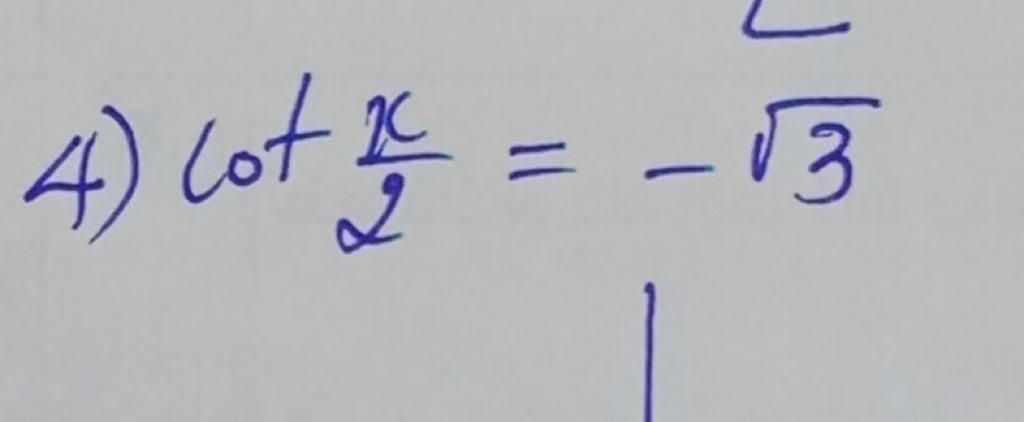 4) cot x/2 = - √3